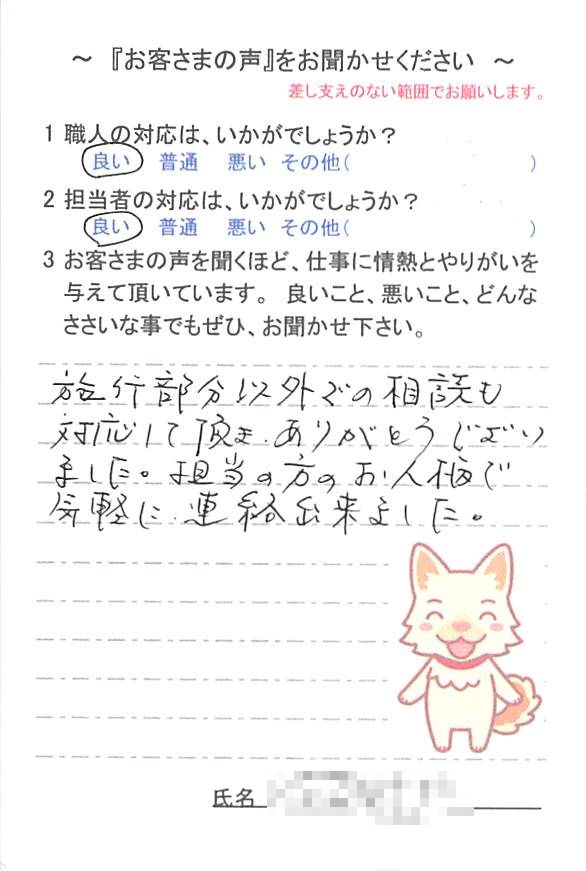 ～ 『お客さまの声』をお聞かせください ～
差し支えのない範囲でお願いします。
1 職人の対応は、いかがでしょうか？
良い 普通 悪い その他( )
2 担当者の対応は、いかがでしょうか？
良い 普通 悪い その他( )
3 お客さまの声を聞くほど、仕事に情熱とやりがいを
与えて頂いています。 良いこと、悪いこと、どんな
ささいな事でもぜひ、お聞かせ下さい。
施行部分以外での相談も
対応して頂き、ありがとうござい
ました。担当の方のお人柄で
気軽に連絡出来ました。
氏名